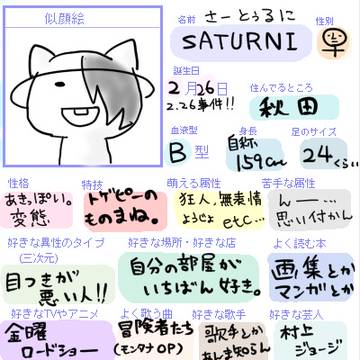 似顔絵
名前
さーとぅるに
SATURNI
性別
誕生日
2月26日
2.26事件!!
住んでるところ
秋田
血液型
B型
身長
自称
159cm
足のサイズ
24くらい
性格
あきっぽい。
変態
特技
トゲピーの
ものまね。
萌える属性
狂人、無表情
ようじょ
etc...
苦手な属性
んー…
思い付かん
好きな異性のタイプ
(三次元)
目つきが
悪い人!!
好きな場所・好きな店
自分の部屋が
いちばん好き。
よく読む本
画集とか
マンガとか
好きなTVやアニメ
金曜
ロードショー
よく歌う曲
冒険者たち
(モンタナOP)
好きな歌手
歌手とか
あんま知らん
好きな芸人
村上
ショージ